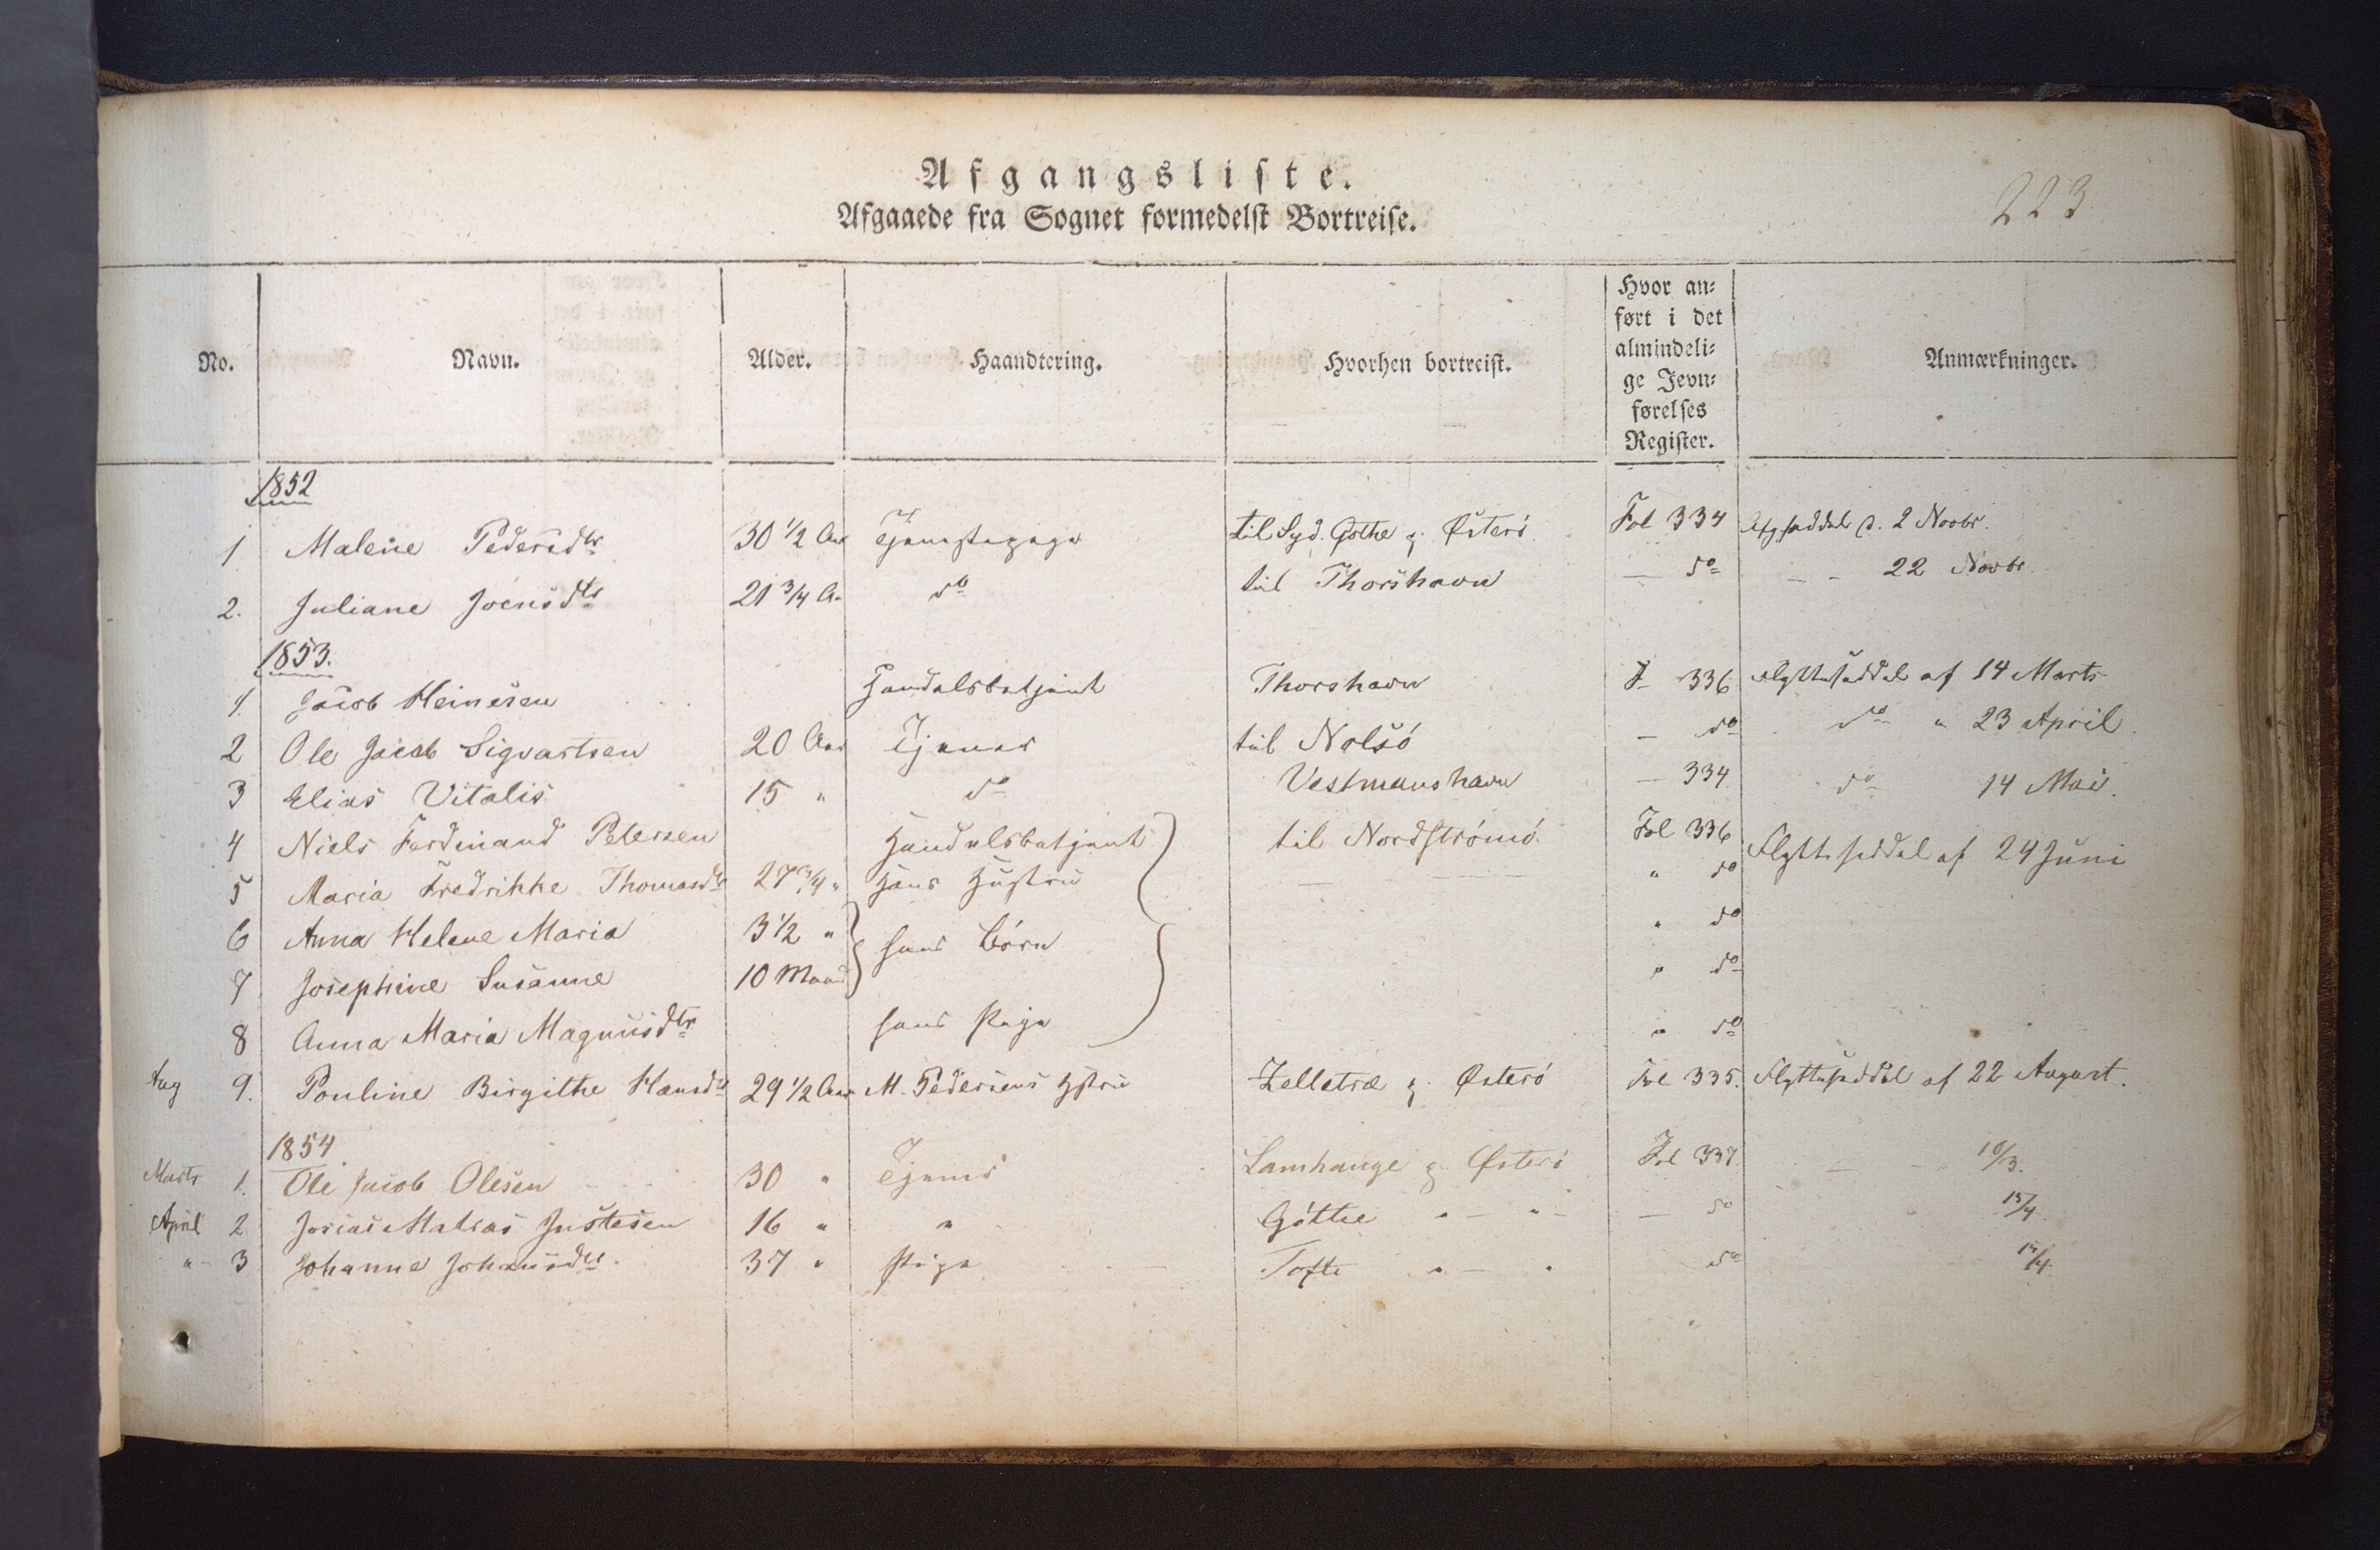 Afgangsliste.
Afgaaede fra Sognet formedelst Bortreise.
223
No. Navn. Alder. Haandtering. Hvorhen bortreist. Hvor an- ført i det almindeli- ge Jevn- førelses Register. Anmærkninger.
1852
1 Malene Pedersdtr 30 1/2 Aar Tjenestepige til Syd. Gothe p. Østerö. Fol 334 Afgseddel d. 2 Novbr.
2. Juliane Joensdtr 21 3/4 A. do til Thorshavn — do — — 22 Novbr.
1853.
1. Jacob Heinesen Handelsbetjent Thorshavn F. 336 Flytteseddel af 14 Marts
2 Ole Jacob Sigvartsen 20 Aar Tjener til Nolsö — do do " 23 April.
3 Elias Vitalis 15 " do Vestmanshavn — 334 do 14 Mai.
4 Niels Ferdinand Petersen Handelsbetjent til Nordströmö. Fol 336 Flytteseddel af 24 Juni
5 Maria Fredrikke Thomasdtr 27 3/4 " Hans Hustru — — " do
6 Anna Helene Maria 3 1/2 " hans Börn " do
7 Josephine Susanne 10 Maan " do
8 Anna Maria Magnusdtr hans Pige " do
Aug 9. Pouline Birgithe Hansdtr 29 1/2 Aar M. Pedersens Hstru Zelletræ p. Österö Fol 335. Flytteseddel af 22 August.
1854
Marts 1. Ole Jacob Olesen 30 " Tjener Lamhauge p. Østerö Fol 337. — — 10/3.
April 2 Josias Matras Justesen 16 " " Göthe " — " — — do 15/4
" 3 Johanne Johansdtr. 37 " Pige Tofte " — " do 15/4.